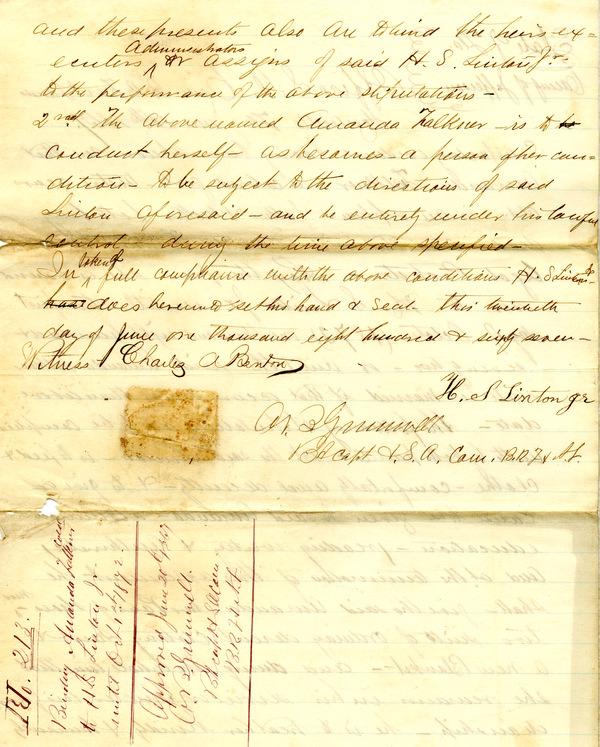 and these presents also are to bind the heirs ex-
ecutors Administrators or assigns of said H. S. Linton Jr.
to the performance of the above stipulations -
2nd The above named Amanda Falkner - is to
conduct herself - as becomes - a person of her con-
dition - to be subject to the directions of said
Linton aforesaid - and be entirely under his lawful
control during the time above specified -
In token of full compliance with the above conditions H. S Linton Jr
has does hereunto set his hand & seal this twentieth
day of June one thousand eight hundred & sixty seven -
Witness Charles A Benton
H. S Linton Jr
Bt Capt U.S.A. Com. B.R.F. &
No. 213.
Binding Amanda
to H S Linton Jr.
until Oct 1st 1872.
Approved June 20th 1867